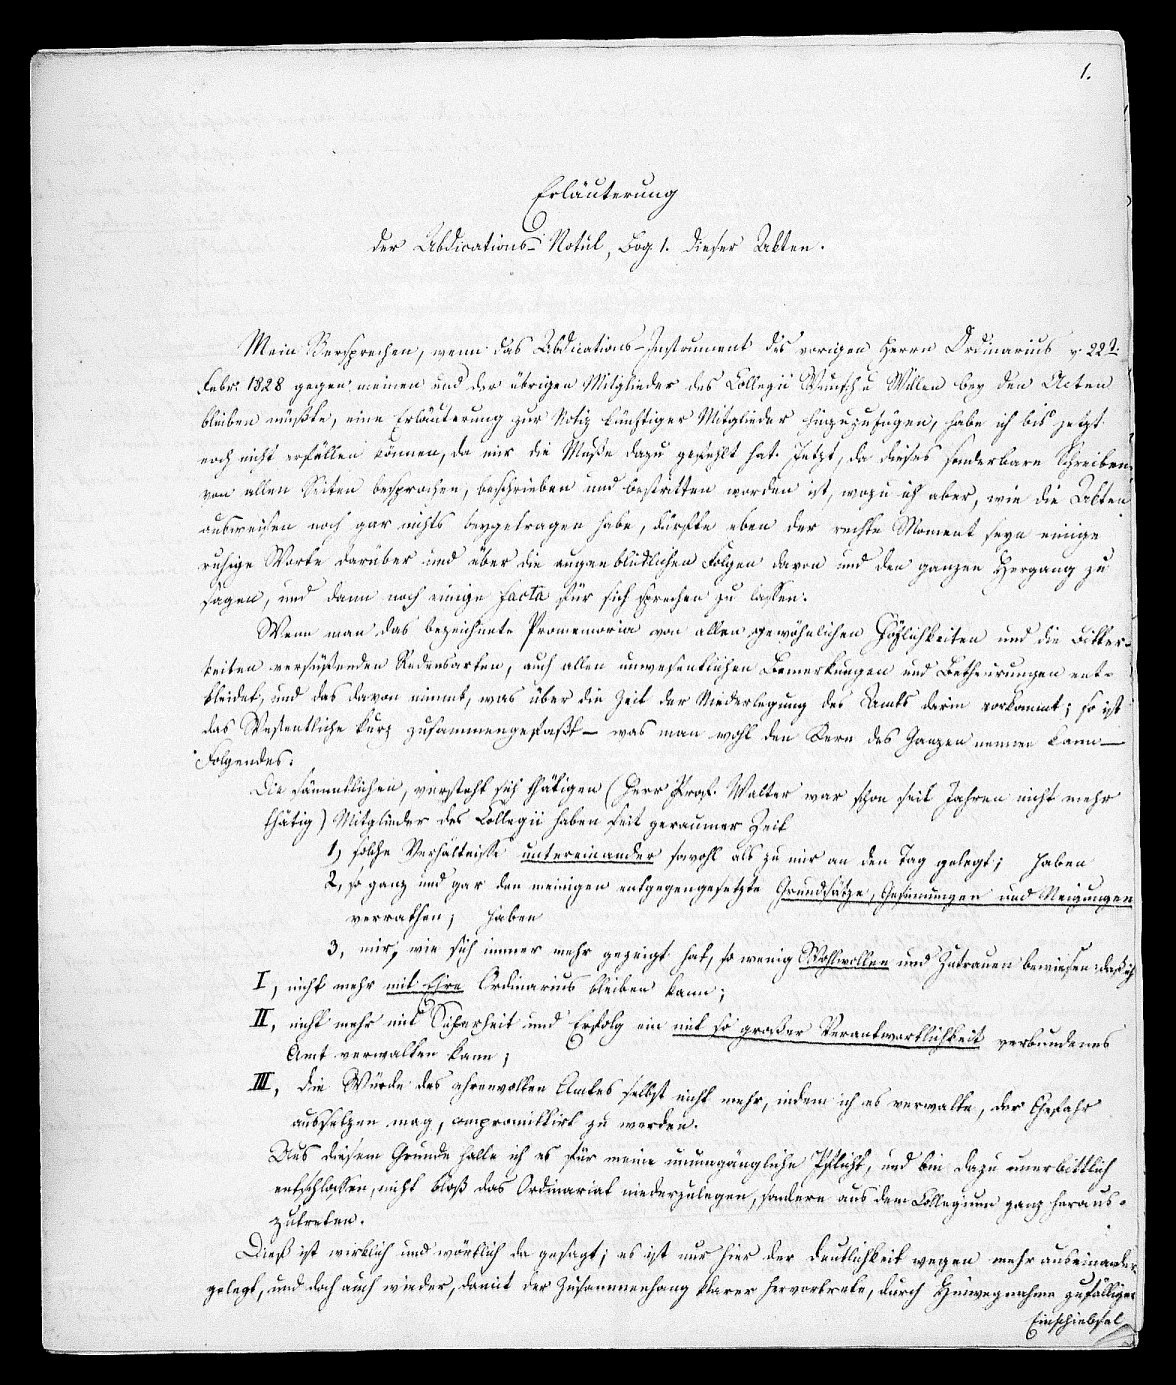 1.
Erläuterung
der Abdications-Notul, Bog 1. dieser Akten.
Mein Versprechen, wenn das Abdications-Instrument des vorigen Herrn Ordinarius v 22t.
Febr. 1828 gegen meinen und der übrigen Mitglieder des Collegii Wunsch u Willen bey den Acten
bleiben müßte, eine Erläuterung zur Notiz künftiger Mitglieder hinzuzufügen, habe ich bis jetzt
noch nicht erfüllen können, da mir die Muße dazu gefehlt hat. Jetzt, da dieses sonderbare Schreiben
von allen Seiten besprochen, beschrieben und bestritten worden ist, wozu ich aber, wie die Akten
ausweisen noch gar nichts beygetragen habe, dürfte eben der rechte Moment seyn einige
ruhige Worte darüber und über die augenblicklichen Folgen davon und den ganzen Hergang zu
sagen, und dann noch einige facta für sich sprechen zu lassen.
Wenn man das bezeichnete Promemoria von allen gewöhnlichen Höflichkeiten und die Bitter-
keiten versüßenden Redensarten, auch allen unwesentlichen Bemerkungen und Betheurungen ent-
kleidet, und das davon nimmt, was über die Zeit der Niederlegung des Amts darin vorkommt; so ist
das Wesentliche kurz zusammengefaßt – was man wohl den Kern des Ganzen nennen kann –
Folgendes:
Die sämmtlichen, versteht sich thätigen (Herr Prof. Walter war schon seit Jahren nicht mehr
thätig) Mitglieder des Collegii haben seit geraumer Zeit
1, solche Verhältnisse untereinander sowohl als zu mir an den Tag gelegt; haben
2, so ganz und gar den meinigen entgegengesetzte Grundsätze, Gesinnungen und Neigungen
verrathen; haben
3, mir, wie sich immer mehr gezeigt hat, so wenig Wohlwollen und Zutrauen bewiesen: daß ich
I, nicht mehr mit Ehre Ordinarius bleiben kann;
II, nicht mehr mit Sicherheit und Erfolg ein mit so großer Verantwortlichkeit verbundenes
Amt verwalten kann;
III, die Würde des ehrenvollen Amtes selbst nicht mehr, indem ich es verwalte, der Gefahr
aussetzen mag, compromittirt zu werden.
Aus diesem Grunde halte ich es für meine unumgängliche Pflicht, und bin dazu unerbittlich
entschlossen, nicht bloß das Ordinariat niederzulegen, sondern aus dem Collegium ganz heraus-
zutreten.
Dieß ist wirklich und wörtlich da gesagt; es ist nur hier der Deutlichkeit wegen mehr auseinander-
gelegt, und doch auch wieder, damit der Zusammenhang klarer hervortrete, durch Hinwegnahme zufälliger
Einschiebsel